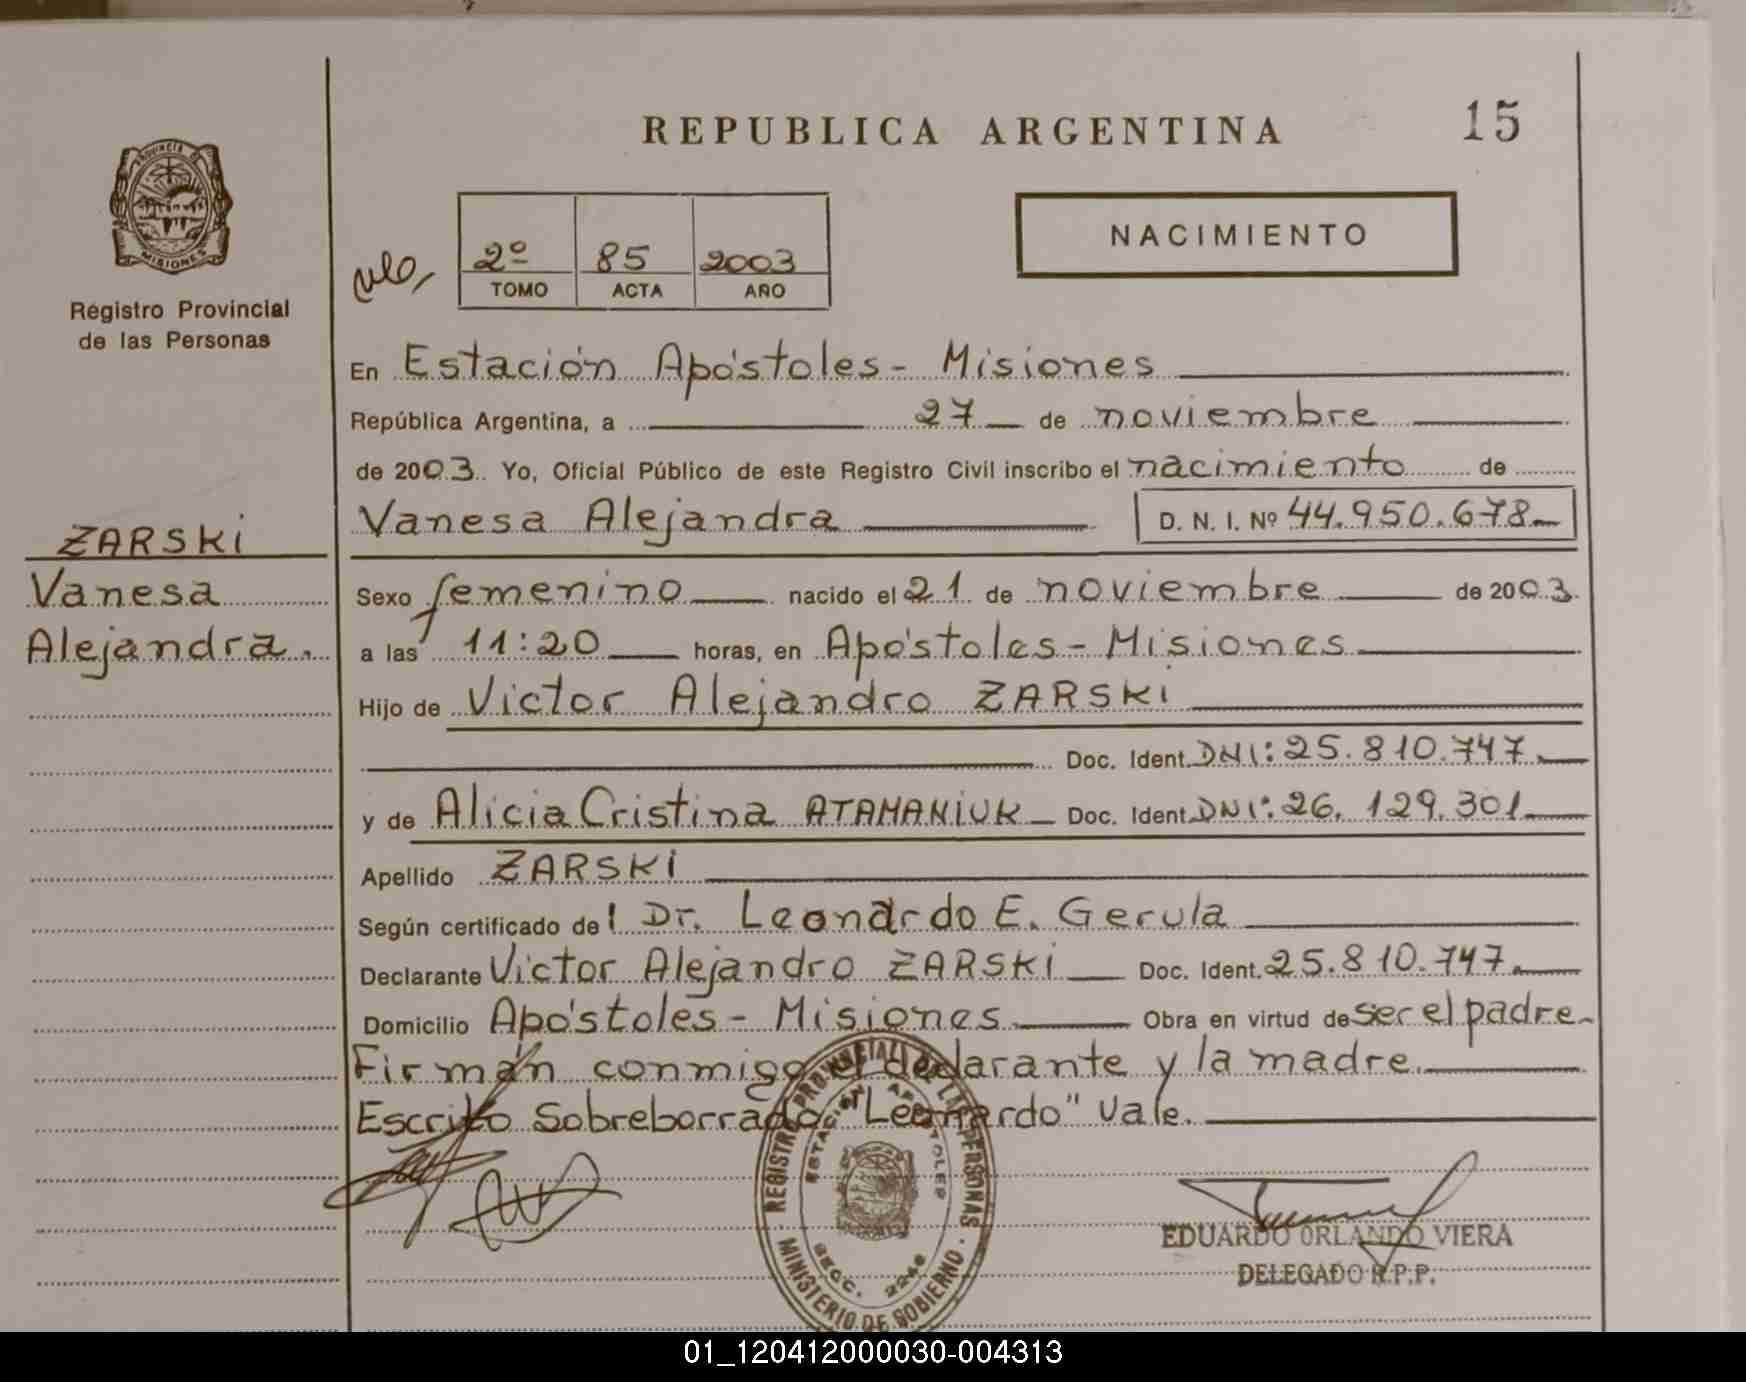 REPUBLICA ARGENTINA
15
PROVINCIA DE
MISIONES
Registro Provincial
de las Personas
2º 85 2003
TOMO ACTA AÑO
NACIMIENTO
En Estación Apóstoles - Misiones
República Argentina, a 27 de noviembre
de 2003. Yo, Oficial Público de este Registro Civil inscribo el nacimiento de
Vanesa Alejandra D. N. I. Nº 44.950.678
ZARSKI
Vanesa
Alejandra.
Sexo femenino nacido el 21 de noviembre de 2003
a las 11:20 horas, en Apóstoles - Misiones
Hijo de Victor Alejandro ZARSKI
Doc. Ident. DNI: 25.810.747
y de Alicia Cristina ATAMANIUK Doc. Ident. DNI: 26.129.301
Apellido ZARSKI
Según certificado del Dr. Leonardo E. Gerula
Declarante Victor Alejandro ZARSKI Doc. Ident. 25.810.747
Domicilio Apóstoles - Misiones Obra en virtud de ser el padre
Firman conmigo el declarante y la madre.
Escrito Sobreborrado "Leonardo" Vale.
REGISTRO PROVINCIAL DE LAS PERSONAS
ESTACION APOSTOLES
SECC. 2246
MINISTERIO DE GOBIERNO
EDUARDO ORLANDO VIERA
DELEGADO R.P.P.
01_120412000030-004313